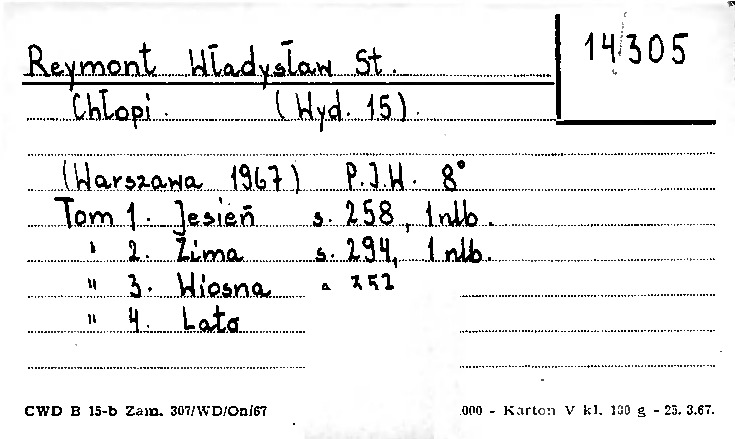 14/305
Reymont Władysław St.
Chłopi. (Wyd. 15).
(Warszawa 1967) P.I.W. 8°
Tom 1. Jesień s. 258, 1 nlb.
" 2. Zima s. 294, 1 nlb.
" 3. Wiosna
" 4. Lato
CWD B 15-b Zam. 307/WD/On/67 .000 - Karton V kl. 130 g - 23. 3.67.